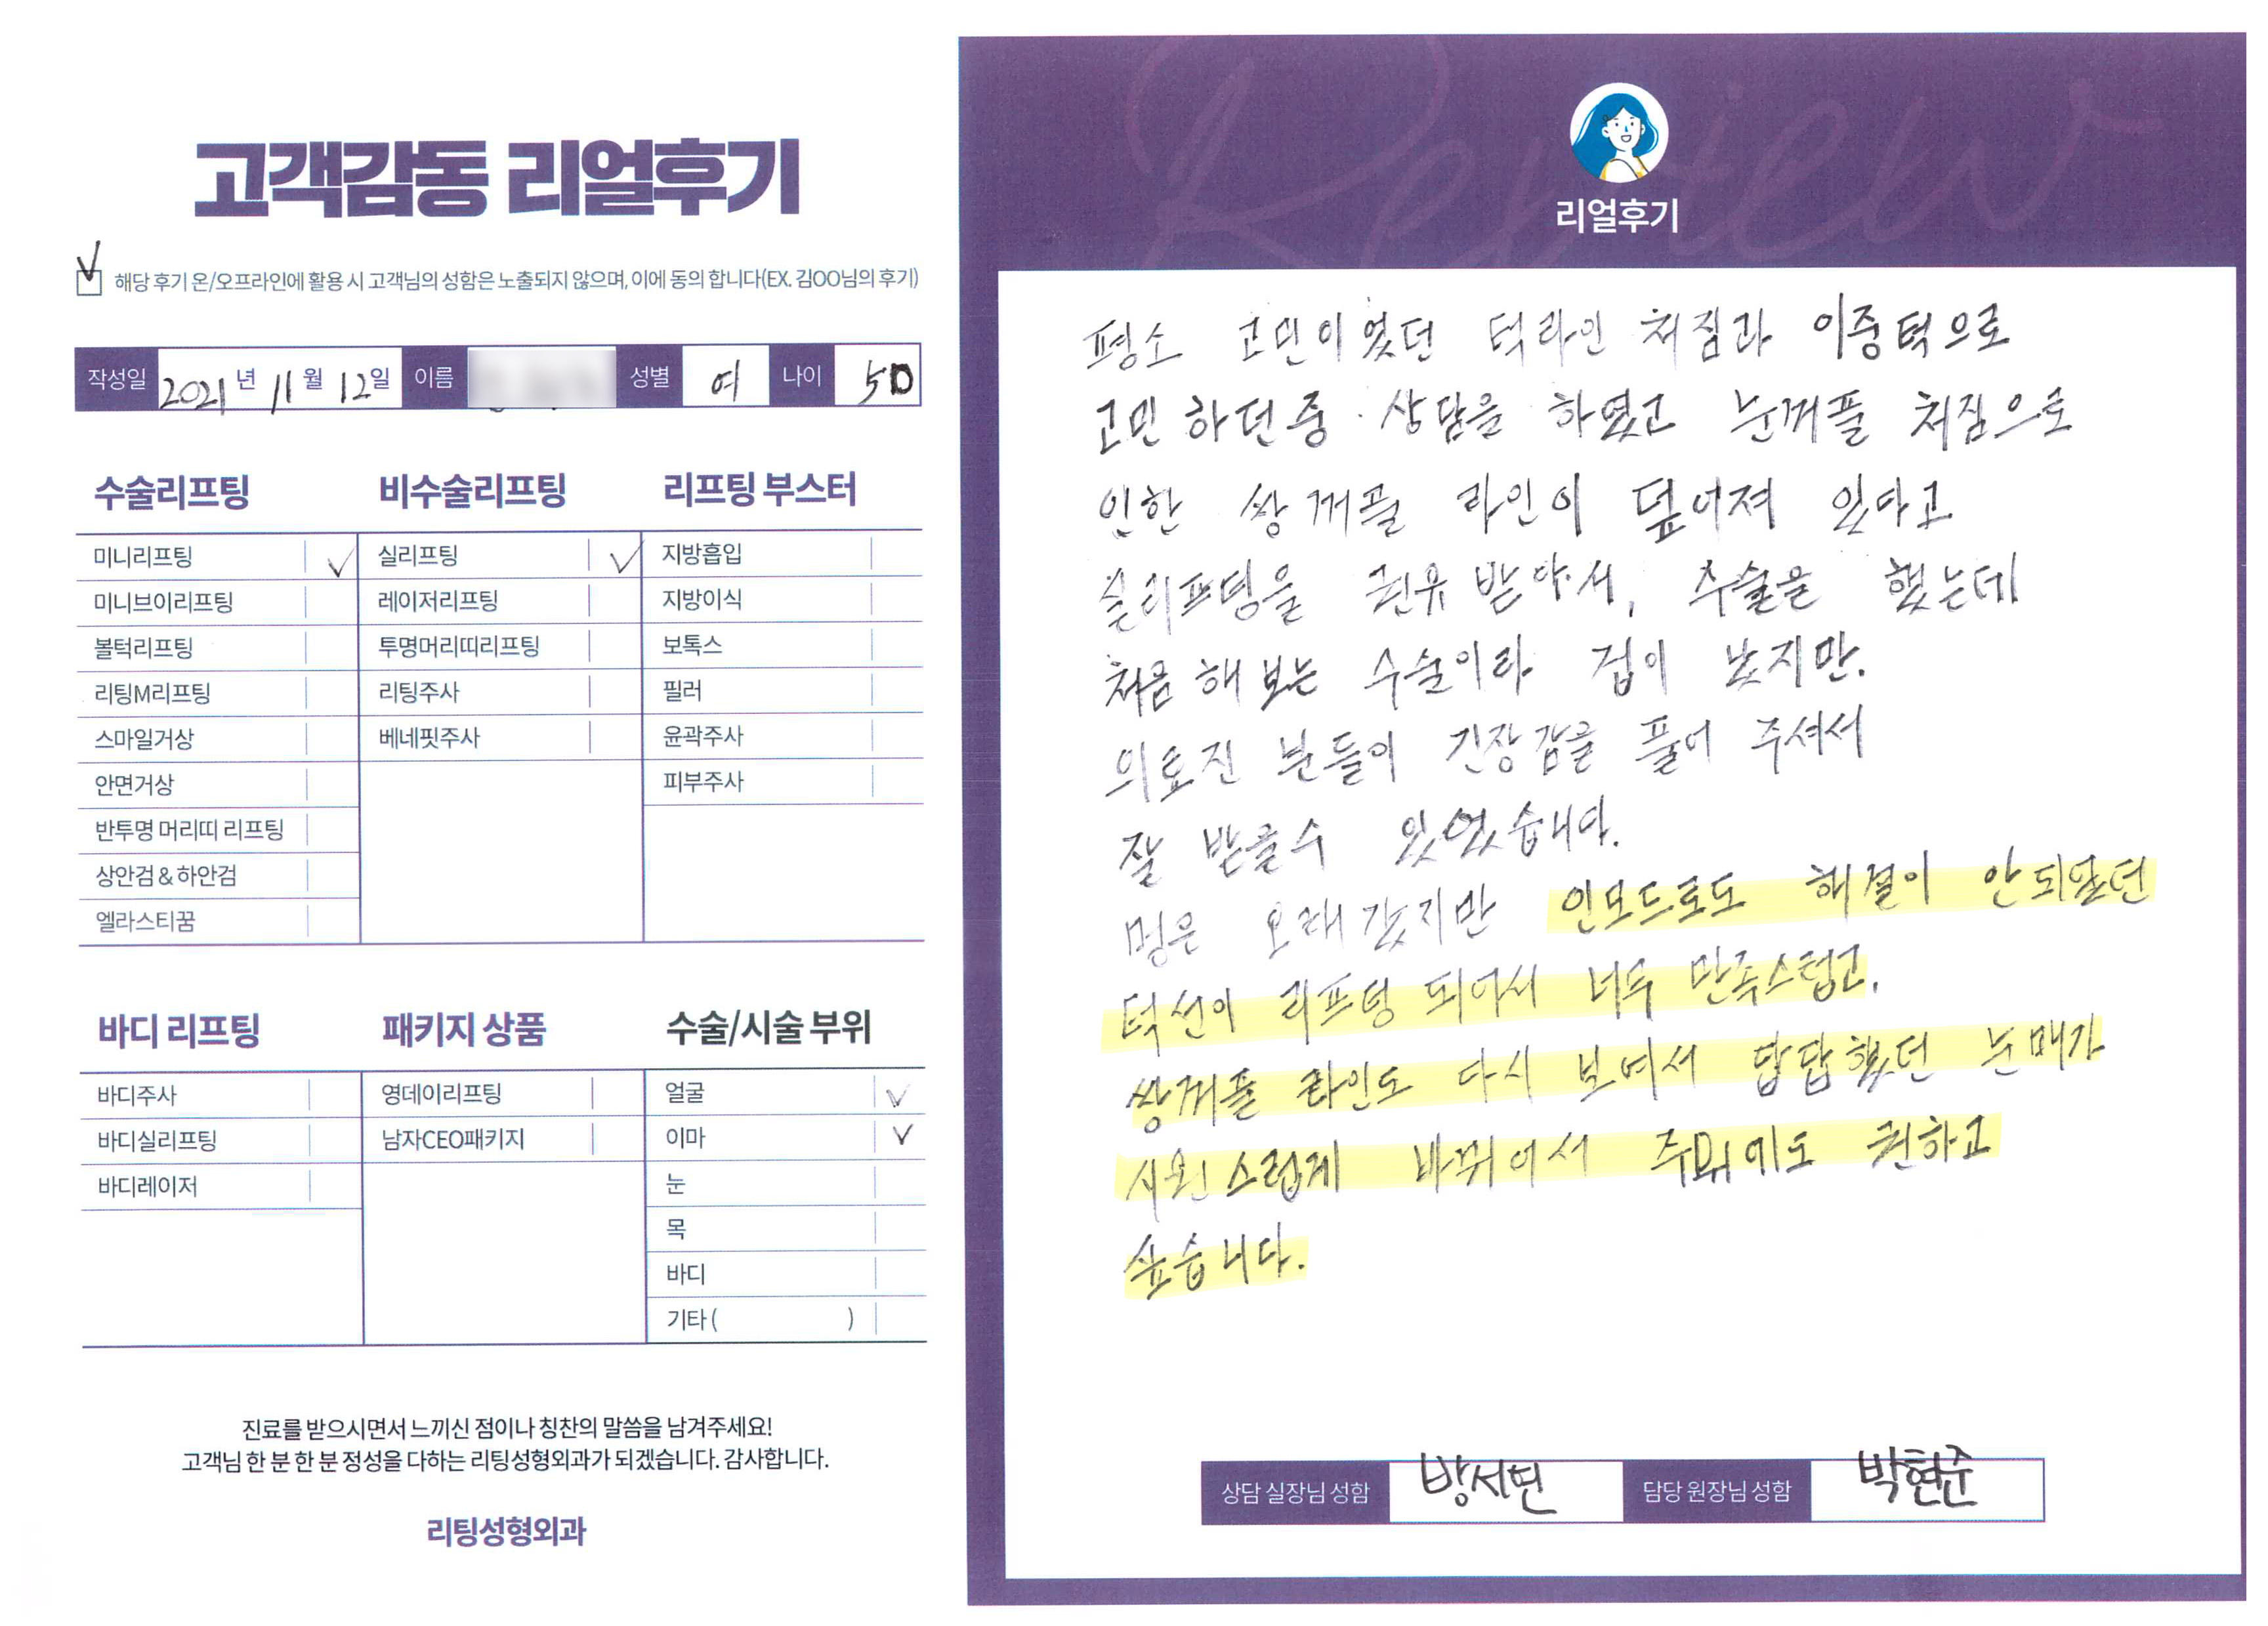 고객감동 리얼후기
해당 후기 온/오프라인에 활용 시 고객님의 성함은 노출되지 않으며, 이에 동의 합니다(EX. 김OO님의 후기)
작성일 2021 년 11 월 12 일 이름 성별 여 나이 50
수술리프팅
미니리프팅 ✓
미니브이리프팅
볼턱리프팅
리팅M리프팅
스마일거상
안면거상
반투명 머리띠 리프팅
상안검 & 하안검
엘라스티꿈
비수술리프팅
실리프팅 ✓
레이저리프팅
투명머리띠리프팅
리팅주사
베네핏주사
리프팅 부스터
지방흡입
지방이식
보톡스
필러
윤곽주사
피부주사
바디 리프팅
바디주사
바디실리프팅
바디레이저
패키지 상품
영데이리프팅
남자CEO패키지
수술/시술 부위
얼굴 ✓
이마 ✓
눈
목
바디
기타 ( )
진료를 받으시면서 느끼신 점이나 칭찬의 말씀을 남겨주세요!
고객님 한 분 한 분 정성을 다하는 리팅성형외과가 되겠습니다. 감사합니다.
리팅성형외과
Review
리얼후기
평소 고민이였던 턱라인 처짐과 이중턱으로
고민 하던중 상담을 하였고 눈꺼풀 처짐으로
인한 쌍꺼풀 라인이 덮어져 있다고
실리프팅을 권유 받아서, 수술을 했는데
처음 해 보는 수술이라 겁이 났지만.
의료진 분들이 긴장감을 풀어 주셔서
잘 받을수 있었습니다.
멍은 오래 갔지만 인모드로도 해결이 안되었던
턱선이 리프팅 되어서 너무 만족스럽고,
쌍꺼풀 라인도 다시 보여서 답답했던 눈매가
시원스럽게 바뀌어서 주위에도 권하고
싶습니다.
상담 실장님 성함 방서현 담당 원장님 성함 박현준